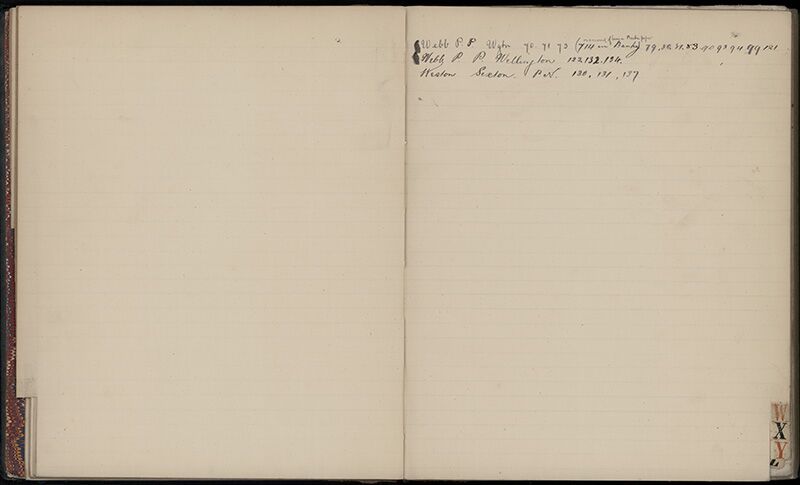 Webb P P Wgtn 70 71 73 (74 in Bank) 79, 83 90 93 94 99 121
Webb P P Wellington 122, 132, 134.
Weston Sexton P.N. 130, 131, 137
W
X
Y